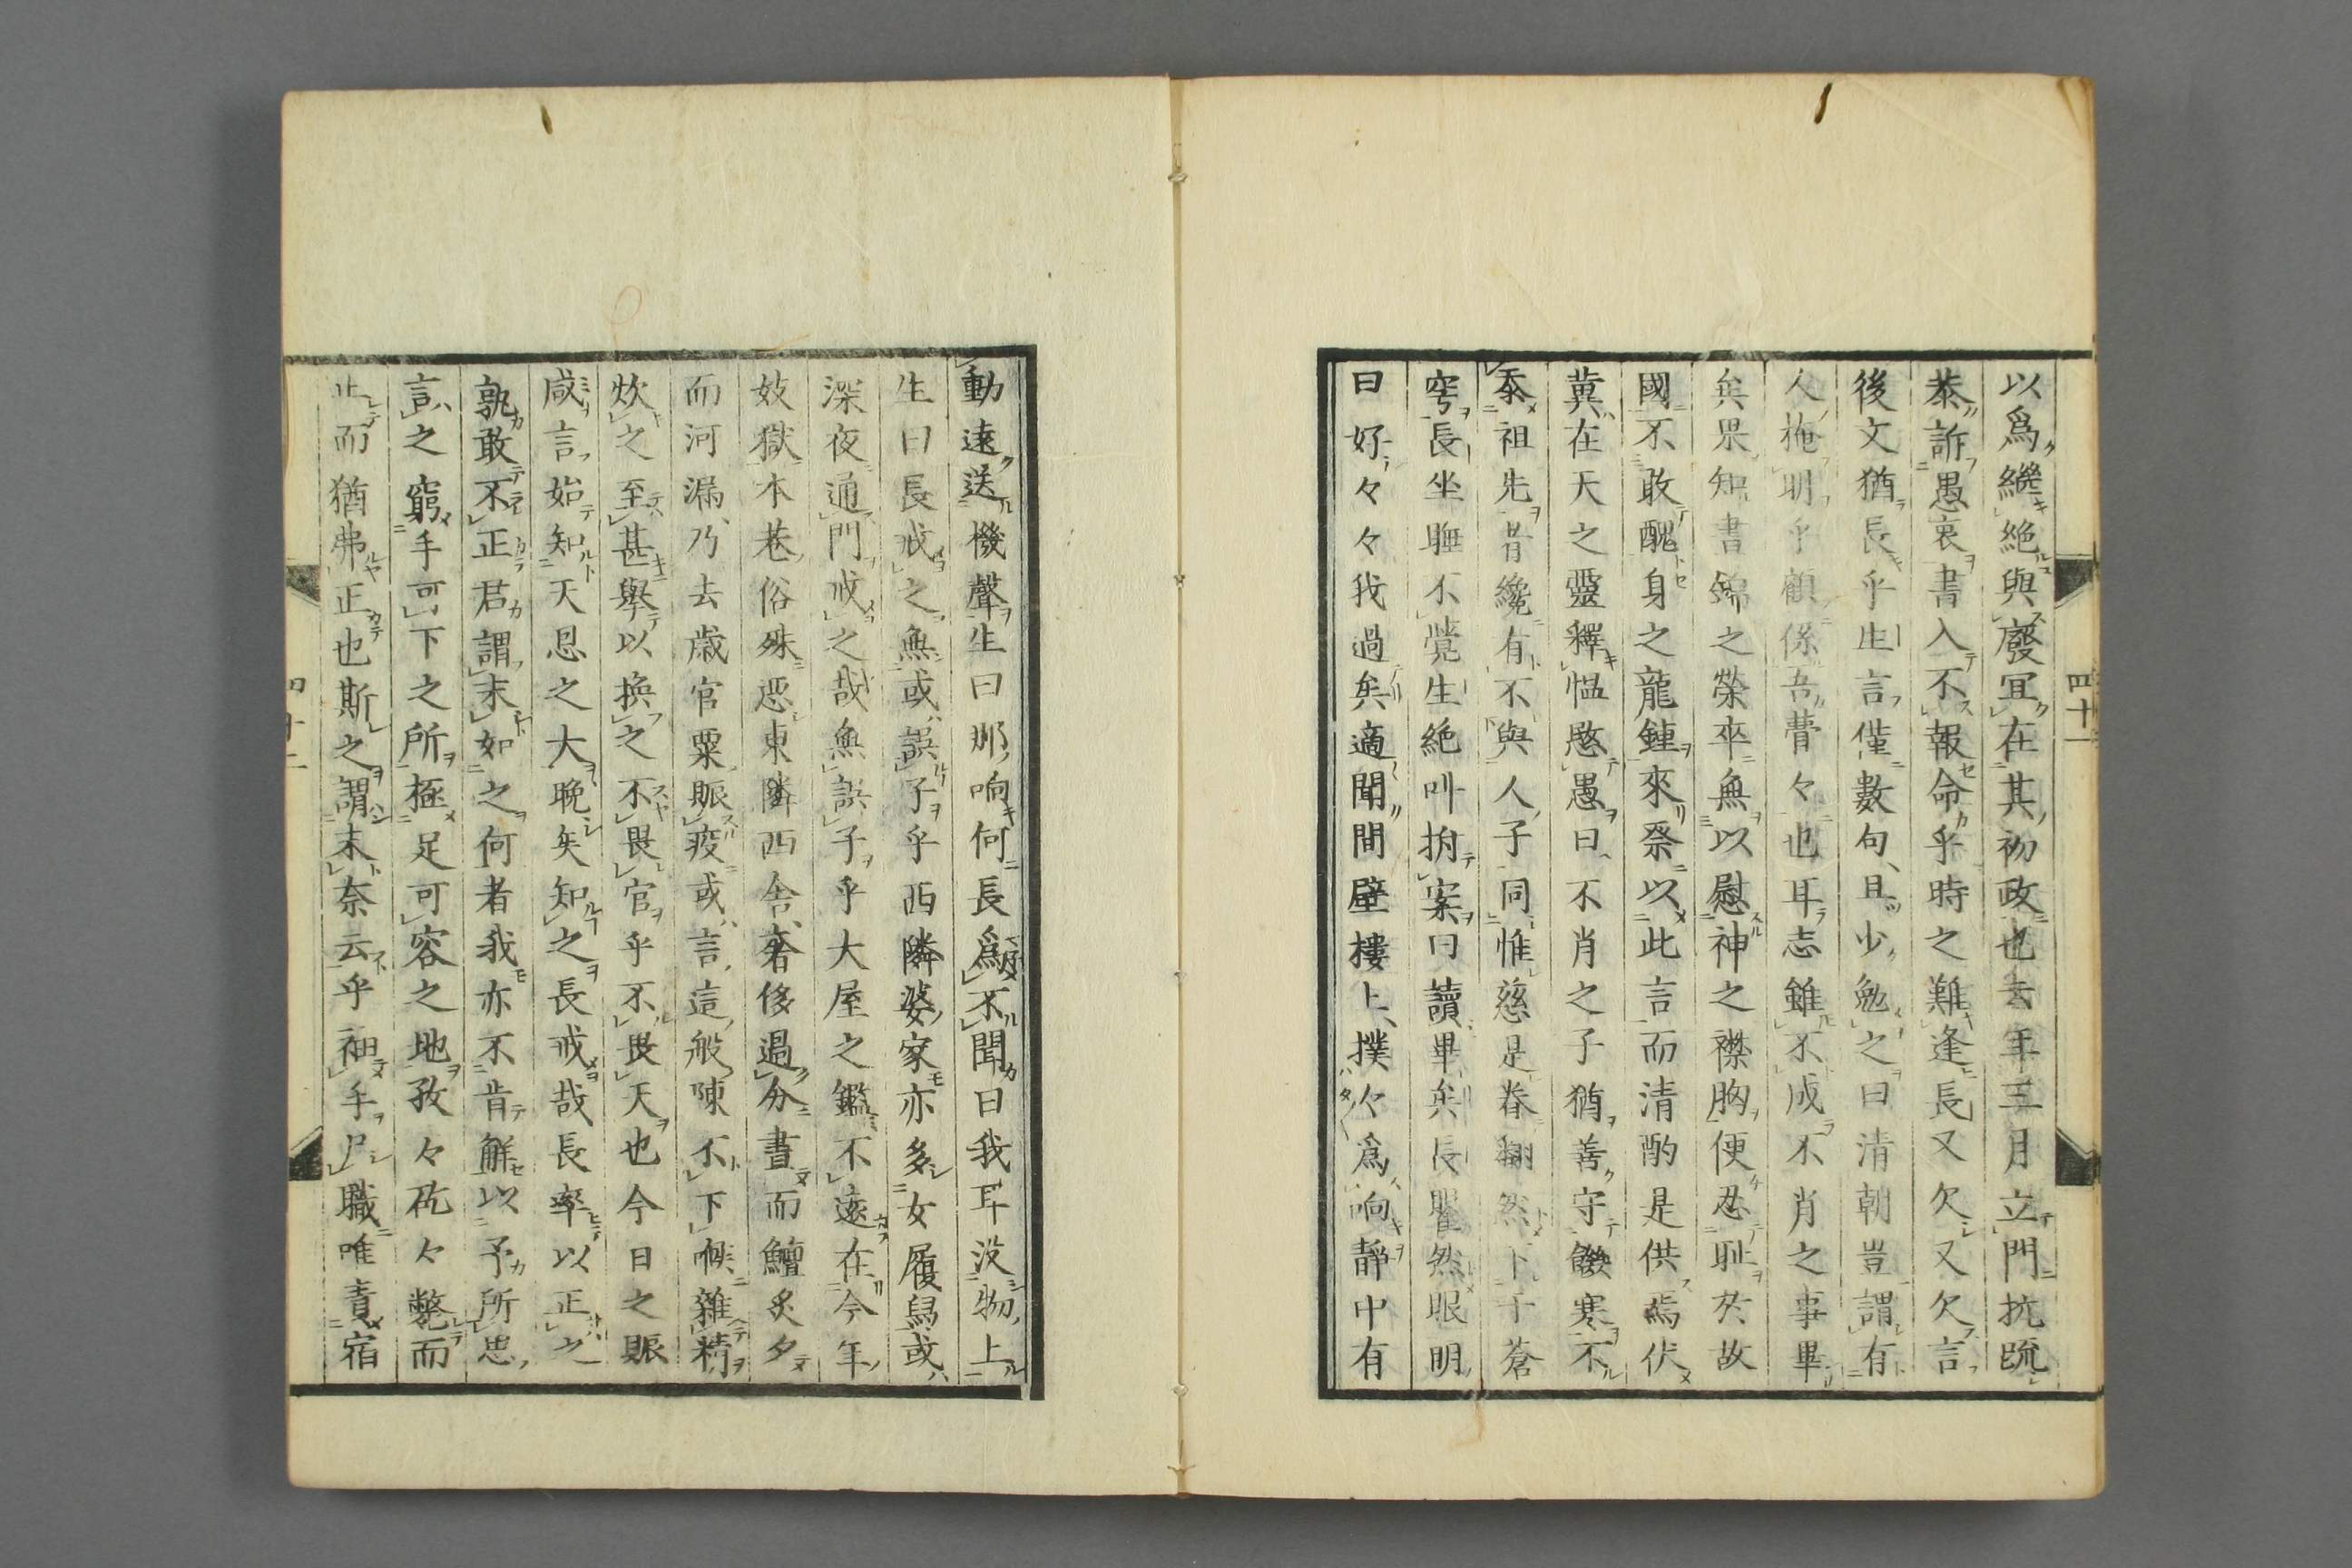 以爲繼絶與廢冝在其初政也去年三月立門抗䟽
泰訢愚衷書入不報命乎時之難逢長又欠又欠言
後文猶長乎生言僅數句且少勉之曰清朝豈謂有
人掩明乎顧係吾瞢々也耳志雖不成不肖之事畢
矣果知書錦之榮卒無以慰神之襟胸便忍耻於故
國不敢醜身之龍鍾來祭以此言而清酌是供焉伏
冀在天之靈釋愠愍愚曰不肖之子猶善守饑寒不
忝祖先昔纔有不與人子同惟慈是眷翻然下于蒼
穹長坐睡不覺生絶叫拊案曰讀畢矣長瞿然眼明
曰好々々我過矣適聞間壁樓上撲々爲响靜中有
四十一
動遠送機聲生曰那响何長爲不聞曰我耳没物上
生曰長戒之無或誤子乎西隣婆家亦多女履舄或
深夜通門戒之哉無誤子乎大屋之鑑不遠在今年
妓獄本巷俗殊惡東隣西舎奢侈過分晝而鱣炙夕
而河漏乃去歲官粟賑疫或言這般陳不下㗋雜精
炊之至甚擧以換之不畏官乎不畏天也今日之賑
咸言始知天恩之大晩矣知之長戒哉長率以正之
孰敢不正君謂末如之何者我亦不肯解以予所思
言之窮手可下之所極足可容之地孜々矻々斃而
止而猶弗正也斯之謂末奈云乎袖手尸職唯責宿
四十二